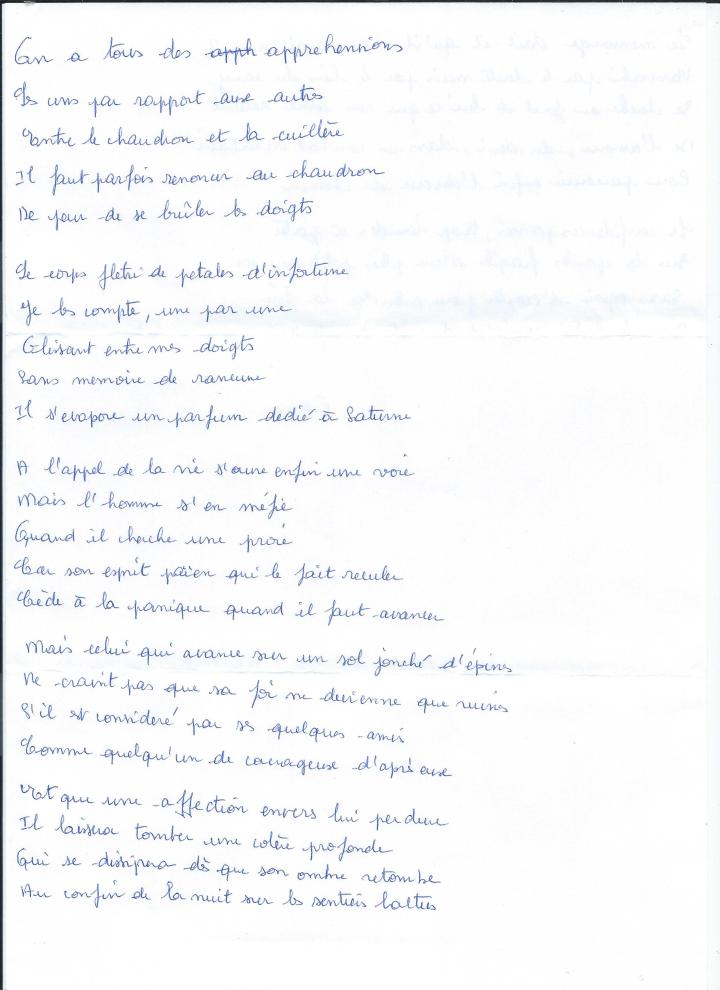 On a tous des apph apprehensions
Les uns par rapport aux autres
Entre le chaudron et la cuillère
Il faut parfois renoncer au chaudron
De peur de se brûler les doigts
Le corps fletri de petales d'infortune
Je les compte, une par une
Glissant entre mes doigts
Sans memoire de rancune
Il s'evapore un parfum dedié à Saturne
A l'appel de la vie s'ouvre enfin une voie
Mais l'homme s'en méfie
Quand il cherche une proie
Car son esprit païen qui le fait reculer
Cède à la panique quand il faut avancer
Mais celui qui avance sur un sol jonché d'épines
Ne craint pas que sa foi ne devienne que ruines
S'il est consideré par ses quelques amis
Comme quelqu'un de courageux d'après eux
Et que une affection envers lui perdure
Il laissera tomber une colère profonde
Qui se dissipera dès que son ombre retombe
Au confin de la nuit sur les sentiers